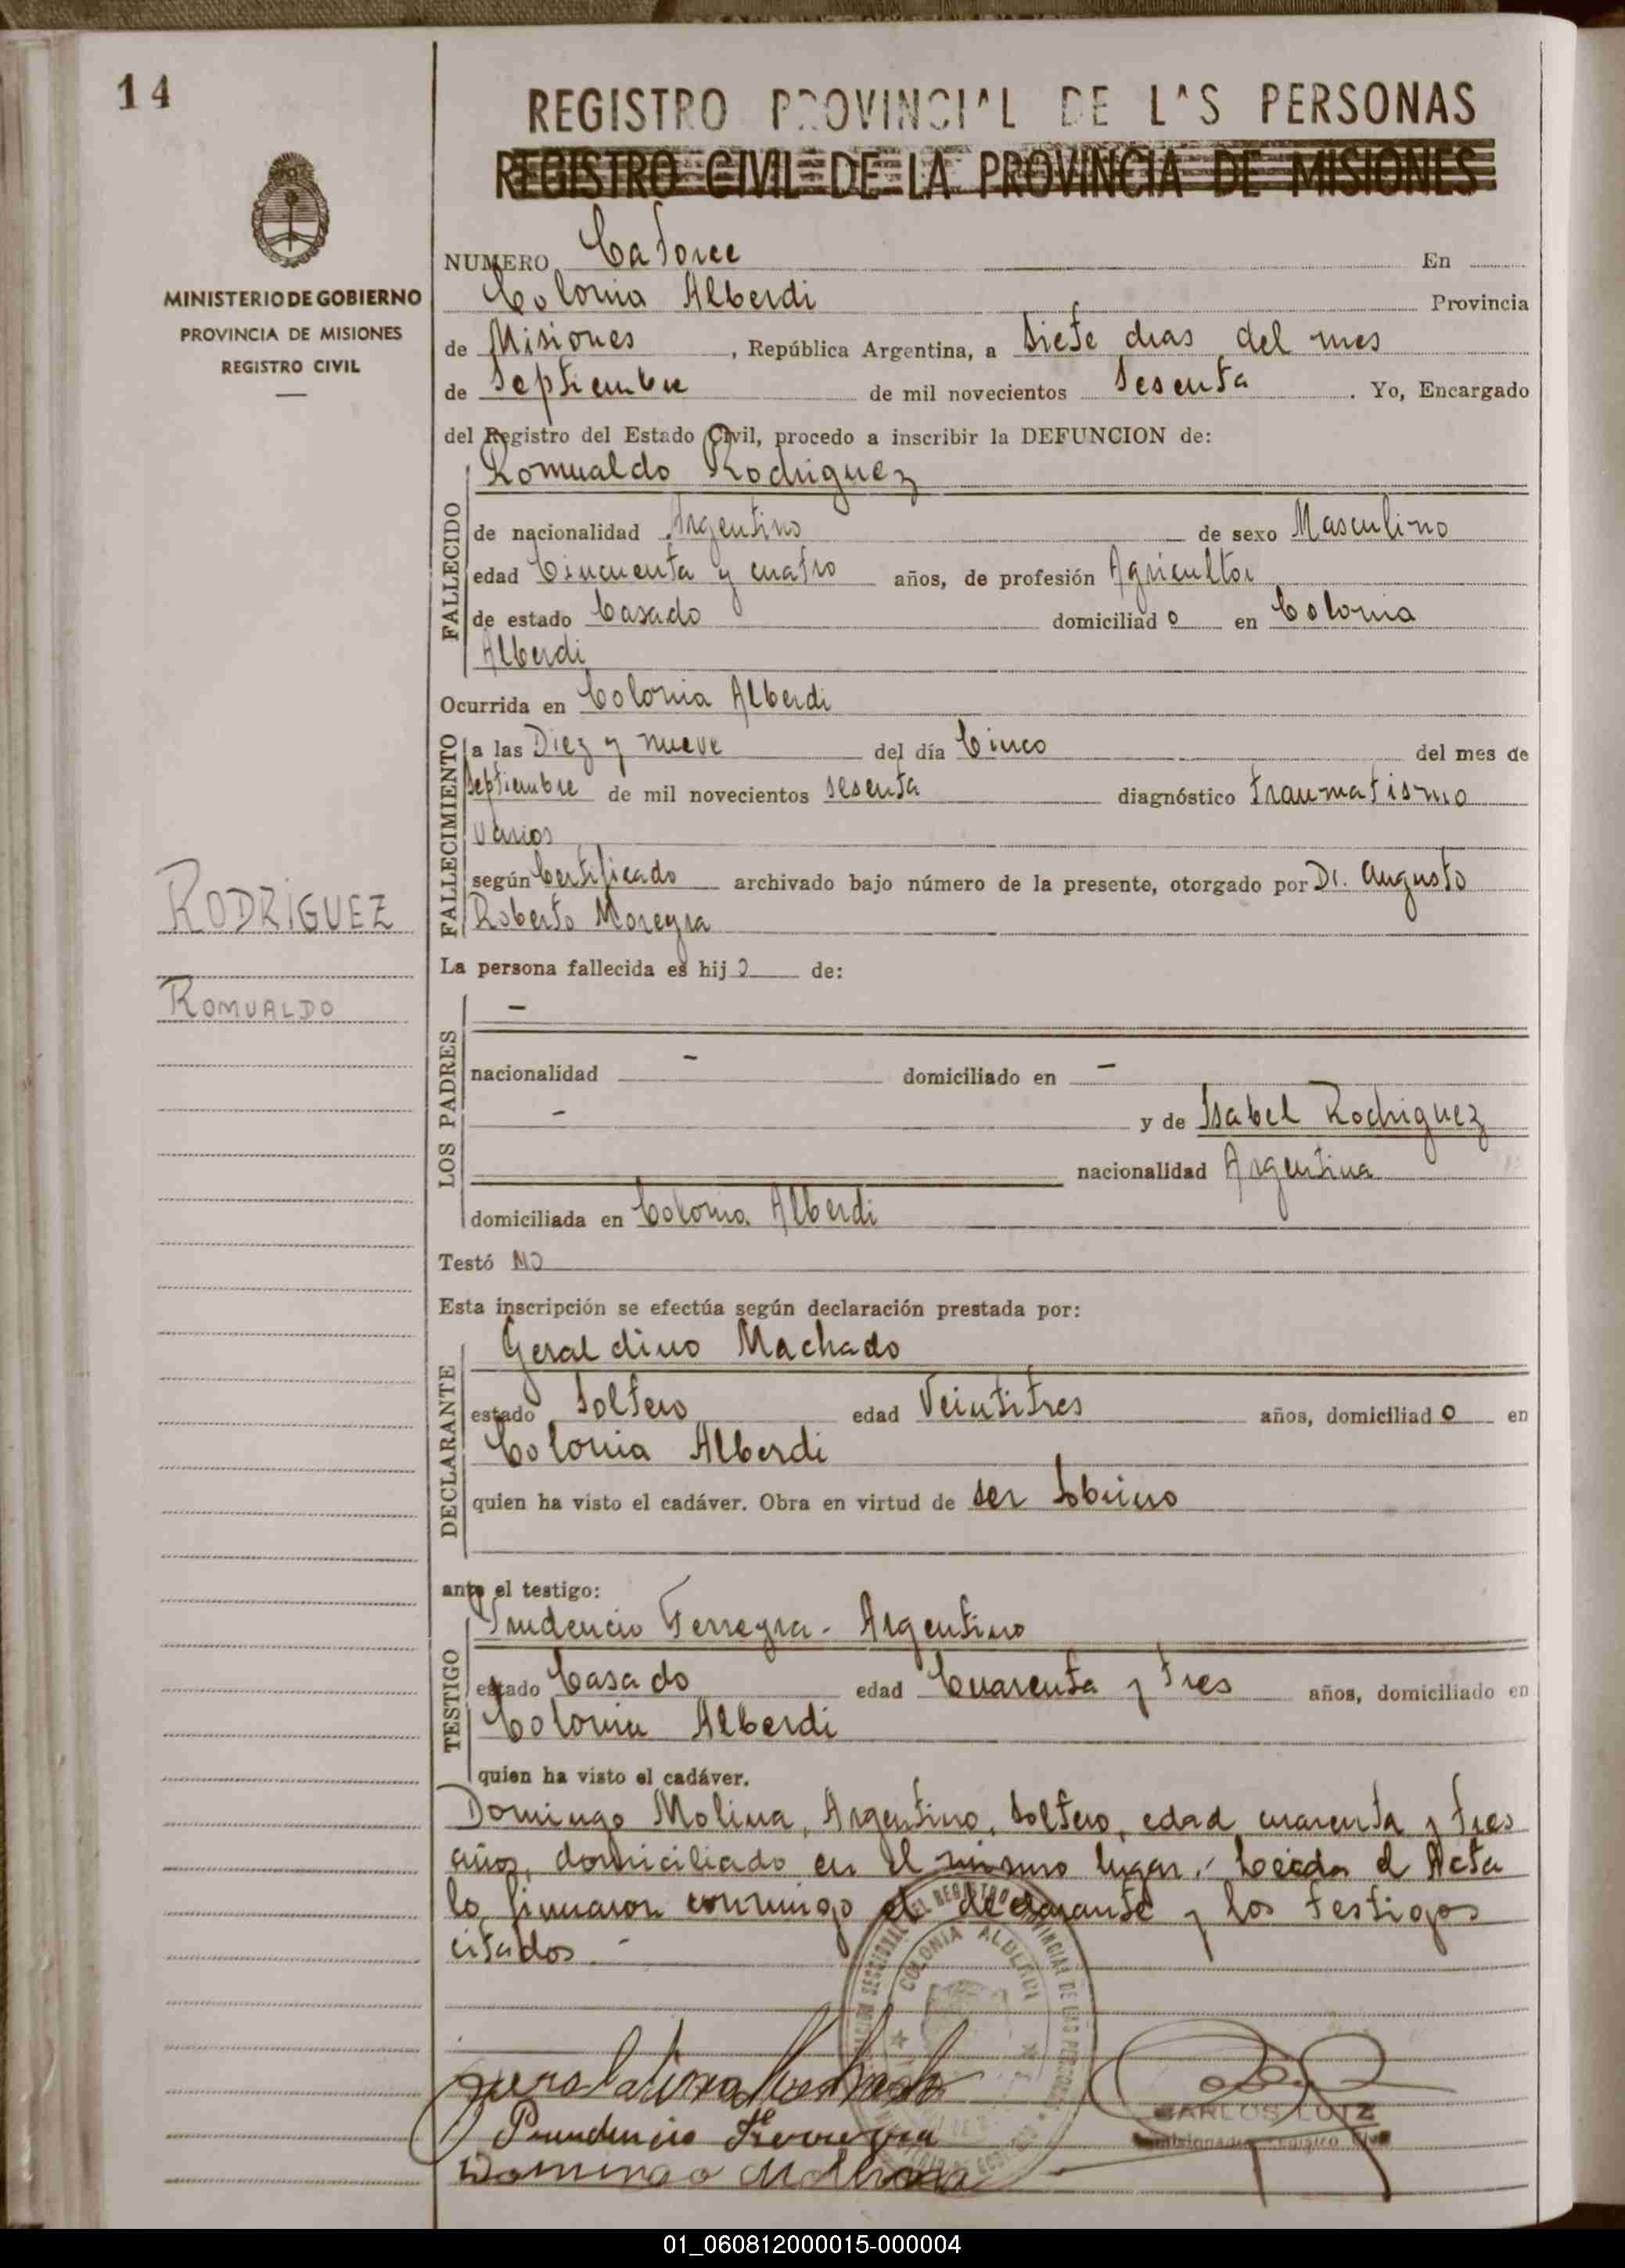 14
REGISTRO PROVINCIAL DE LAS PERSONAS
REGISTRO CIVIL DE LA PROVINCIA DE MISIONES
MINISTERIO DE GOBIERNO
PROVINCIA DE MISIONES
REGISTRO CIVIL
NUMERO Catorce En
Colonia Alberdi Provincia
de Misiones, República Argentina, a Siete dias del mes
de Septiembre de mil novecientos Sesenta. Yo, Encargado
del Registro del Estado Civil, procedo a inscribir la DEFUNCION de:
Romualdo Rodriguez
FALLECIDO
de nacionalidad Argentino de sexo Masculino
edad Cincuenta y cuatro años, de profesión Agricultor
de estado Casado domiciliado en Colonia
Alberdi
Ocurrida en Colonia Alberdi
FALLECIMIENTO
a las Diez y nueve del día Cinco del mes de
Septiembre de mil novecientos sesenta diagnóstico traumatismo
varios
según Certificado archivado bajo número de la presente, otorgado por Dr. Augusto
Roberto Moreyra
RODRIGUEZ
ROMUALDO
La persona fallecida es hijo de:
LOS PADRES
-
nacionalidad - domiciliado en -
- y de Isabel Rodriguez
nacionalidad Argentina
domiciliada en Colonia Alberdi
Testó NO
Esta inscripción se efectúa según declaración prestada por:
DECLARANTE
Geraldino Machado
estado Soltero edad Veintitres años, domiciliado en
Colonia Alberdi
quien ha visto el cadáver. Obra en virtud de ser Sobrino
ante el testigo:
TESTIGO
Prudencio Ferreyra - Argentino
estado Casado edad Cuarenta y tres años, domiciliado en
Colonia Alberdi
quien ha visto el cadáver.
Domingo Molina, Argentino, Soltero, edad cuarenta y tres
años, domiciliado en el mismo lugar. Leida el Acta
la firmaron conmigo el declarante y los testigos
citados -
COLONIA ALBERDI
Prudencio Ferreyra
Domingo Molina
CARLOS LUTZ
01_060812000015-000004